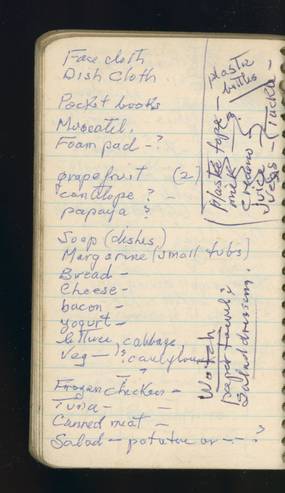 Face cloth
Dish Cloth
Pocket books
Muscatel.
Foam pad - ?
grapefruit (2)
cantlope ? -
papaya ?
Soap (dishes)
Margarine (small tubs)
Bread -
Cheese -
bacon -
yogurt -
lettuce, cabbage
Veg - ? cauliflower
Frozen chicken -
Tuna -
Canned meat -
Salad - potatoe or - - ?
plastic
bottles
Plastic tape -
milk - ?
Creamo
Juice
Veggs - (Tucks -
Watch
paper towels?
Salad dressing.